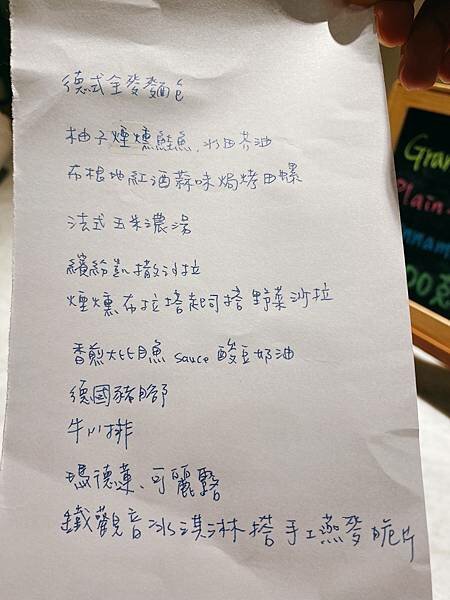 德式全麥麵包
柚子煙燻鮭魚.水田芥油
布根地紅酒蒜味焗烤田螺
法式玉米濃湯
繽紛凱撒沙拉
煙燻布拉塔起司搭野菜沙拉
香煎大比目魚 sauce 酸豆奶油
德國豬腳
牛小排
瑪德蓮、可麗露
鐵觀音冰淇淋搭手工燕麥脆片
Gran
Plain
nnam
00